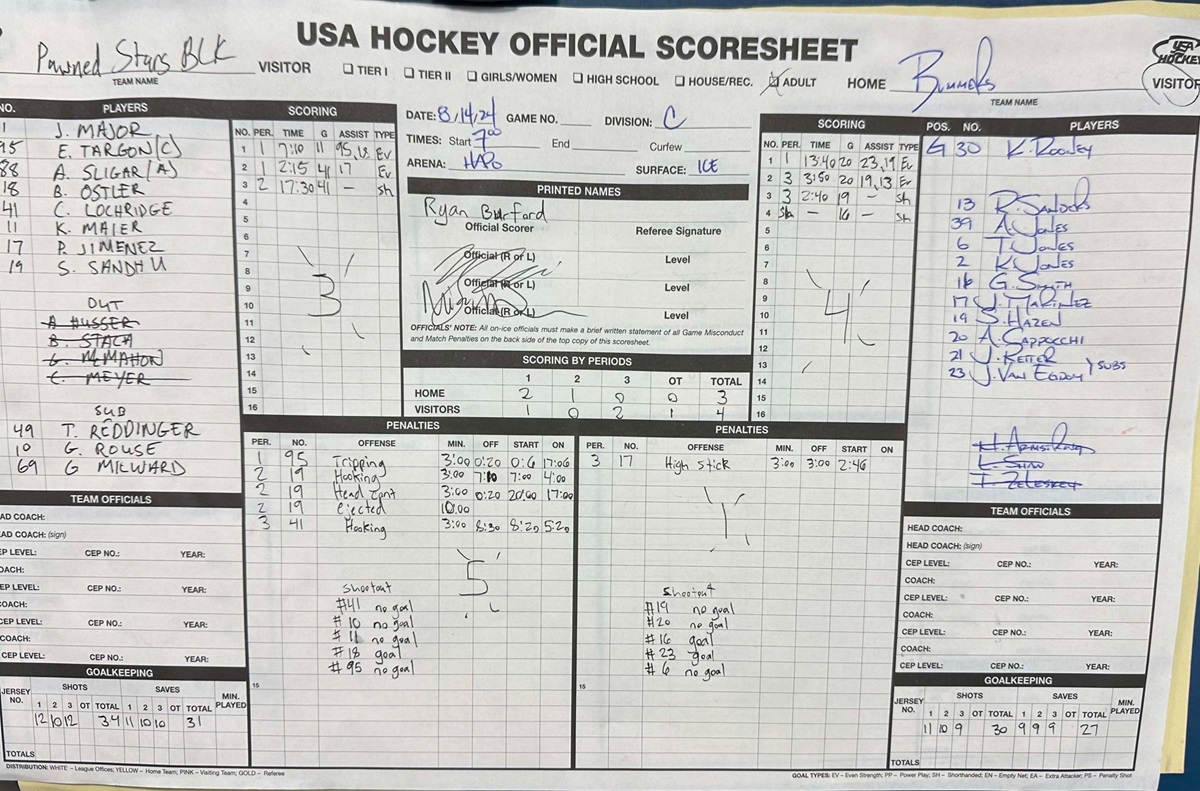 USA HOCKEY OFFICIAL SCORESHEET
Pawned Stars BLK VISITOR
TEAM NAME
☐ TIER I ☐ TIER II ☐ GIRLS/WOMEN ☐ HIGH SCHOOL ☐ HOUSE/REC. ☒ ADULT
HOME Bummers
TEAM NAME
USA HOCKEY
VISITOR
NO. PLAYERS
1 J. MAJOR
95 E. TARGON (C)
88 A. SLIGAR (A)
18 B. OSTLER
41 C. LOCHRIDGE
11 K. MAIER
17 P. JIMENEZ
19 S. SANDHU
OUT
A HUSSER
B. STACH
G. McMAHON
C. MEYER
SUB
49 T. REDDINGER
10 G. ROUSE
69 G MILWARD
TEAM OFFICIALS
HEAD COACH:
HEAD COACH: (sign)
CEP LEVEL: CEP NO.: YEAR:
COACH:
CEP LEVEL: CEP NO.: YEAR:
COACH:
CEP LEVEL: CEP NO.: YEAR:
COACH:
CEP LEVEL: CEP NO.: YEAR:
GOALKEEPING
JERSEY NO. SHOTS SAVES MIN. PLAYED
1 2 3 OT TOTAL 1 2 3 OT TOTAL
12 10 12 34 11 10 10 31
TOTALS
SCORING
NO. PER. TIME G ASSIST TYPE
1 1 7:10 11 95,18 Ev
2 1 2:15 41 17 Ev
3 2 17:30 41 – sh
4
5
6
7
8
9
10
11
12
13
14
15
16
3
DATE: 8,14,24 GAME NO. DIVISION: C
TIMES: Start 7:00 End Curfew
ARENA: HAPO SURFACE: ICE
PRINTED NAMES
Ryan Burford
Official Scorer Referee Signature
Official (R or L) Level
Official (R or L) Level
Official (R or L) Level
OFFICIALS' NOTE: All on-ice officials must make a brief written statement of all Game Misconduct
and Match Penalties on the back side of the top copy of this scoresheet.
SCORING BY PERIODS
1 2 3 OT TOTAL
HOME 2 1 0 0 3
VISITORS 1 0 2 1 4
SCORING
NO. PER. TIME G ASSIST TYPE
1 1 13:40 20 23,19 Ev
2 3 3:50 20 19,13 Ev
3 3 2:40 19 – sh
4 – 16 – sh
5
6
7
8
9
10
11
12
13
14
15
16
4
POS. NO. PLAYERS
G 30 K. Rooney
13 R. SANDERS
39 A. JONES
6 T. JONES
2 K. JONES
16 G. SMITH
17 J. MARINEZ
19 S. HAZEN
20 A. SAPPOCCHI
21 J. KETTER
23 J. VAN EGDOM } SUBS
H. ARMSTRONG
L. SHAW
T. ZELESKEY
PENALTIES
PER. NO. OFFENSE MIN. OFF START ON
1 95 Tripping 3:00 0:20 0:6 17:06
2 19 Hooking 3:00 7:10 7:00 4:00
2 19 Head cont 3:00 0:20 20:00 17:00
2 19 ejected 10:00
3 41 Hooking 3:00 8:30 8:20 5:20
5
Shootout
#41 no goal
# 10 no goal
# 11 no goal
# 18 goal
# 95 no goal
15
PENALTIES
PER. NO. OFFENSE MIN. OFF START ON
3 17 High Stick 3:00 3:00 2:46
1
Shootout
#19 no goal
#20 no goal
# 16 goal
# 23 goal
# 6 no goal
15
TEAM OFFICIALS
HEAD COACH:
HEAD COACH: (sign)
CEP LEVEL: CEP NO.: YEAR:
COACH:
CEP LEVEL: CEP NO.: YEAR:
COACH:
CEP LEVEL: CEP NO.: YEAR:
COACH:
CEP LEVEL: CEP NO.: YEAR:
GOALKEEPING
JERSEY NO. SHOTS SAVES MIN. PLAYED
1 2 3 OT TOTAL 1 2 3 OT TOTAL
11 10 9 30 9 9 9 27
TOTALS
DISTRIBUTION: WHITE – League Offices; YELLOW – Home Team; PINK – Visiting Team; GOLD – Referee
GOAL TYPES: EV – Even Strength; PP – Power Play; SH – Shorthanded; EN – Empty Net; EA – Extra Attacker; PS – Penalty Shot